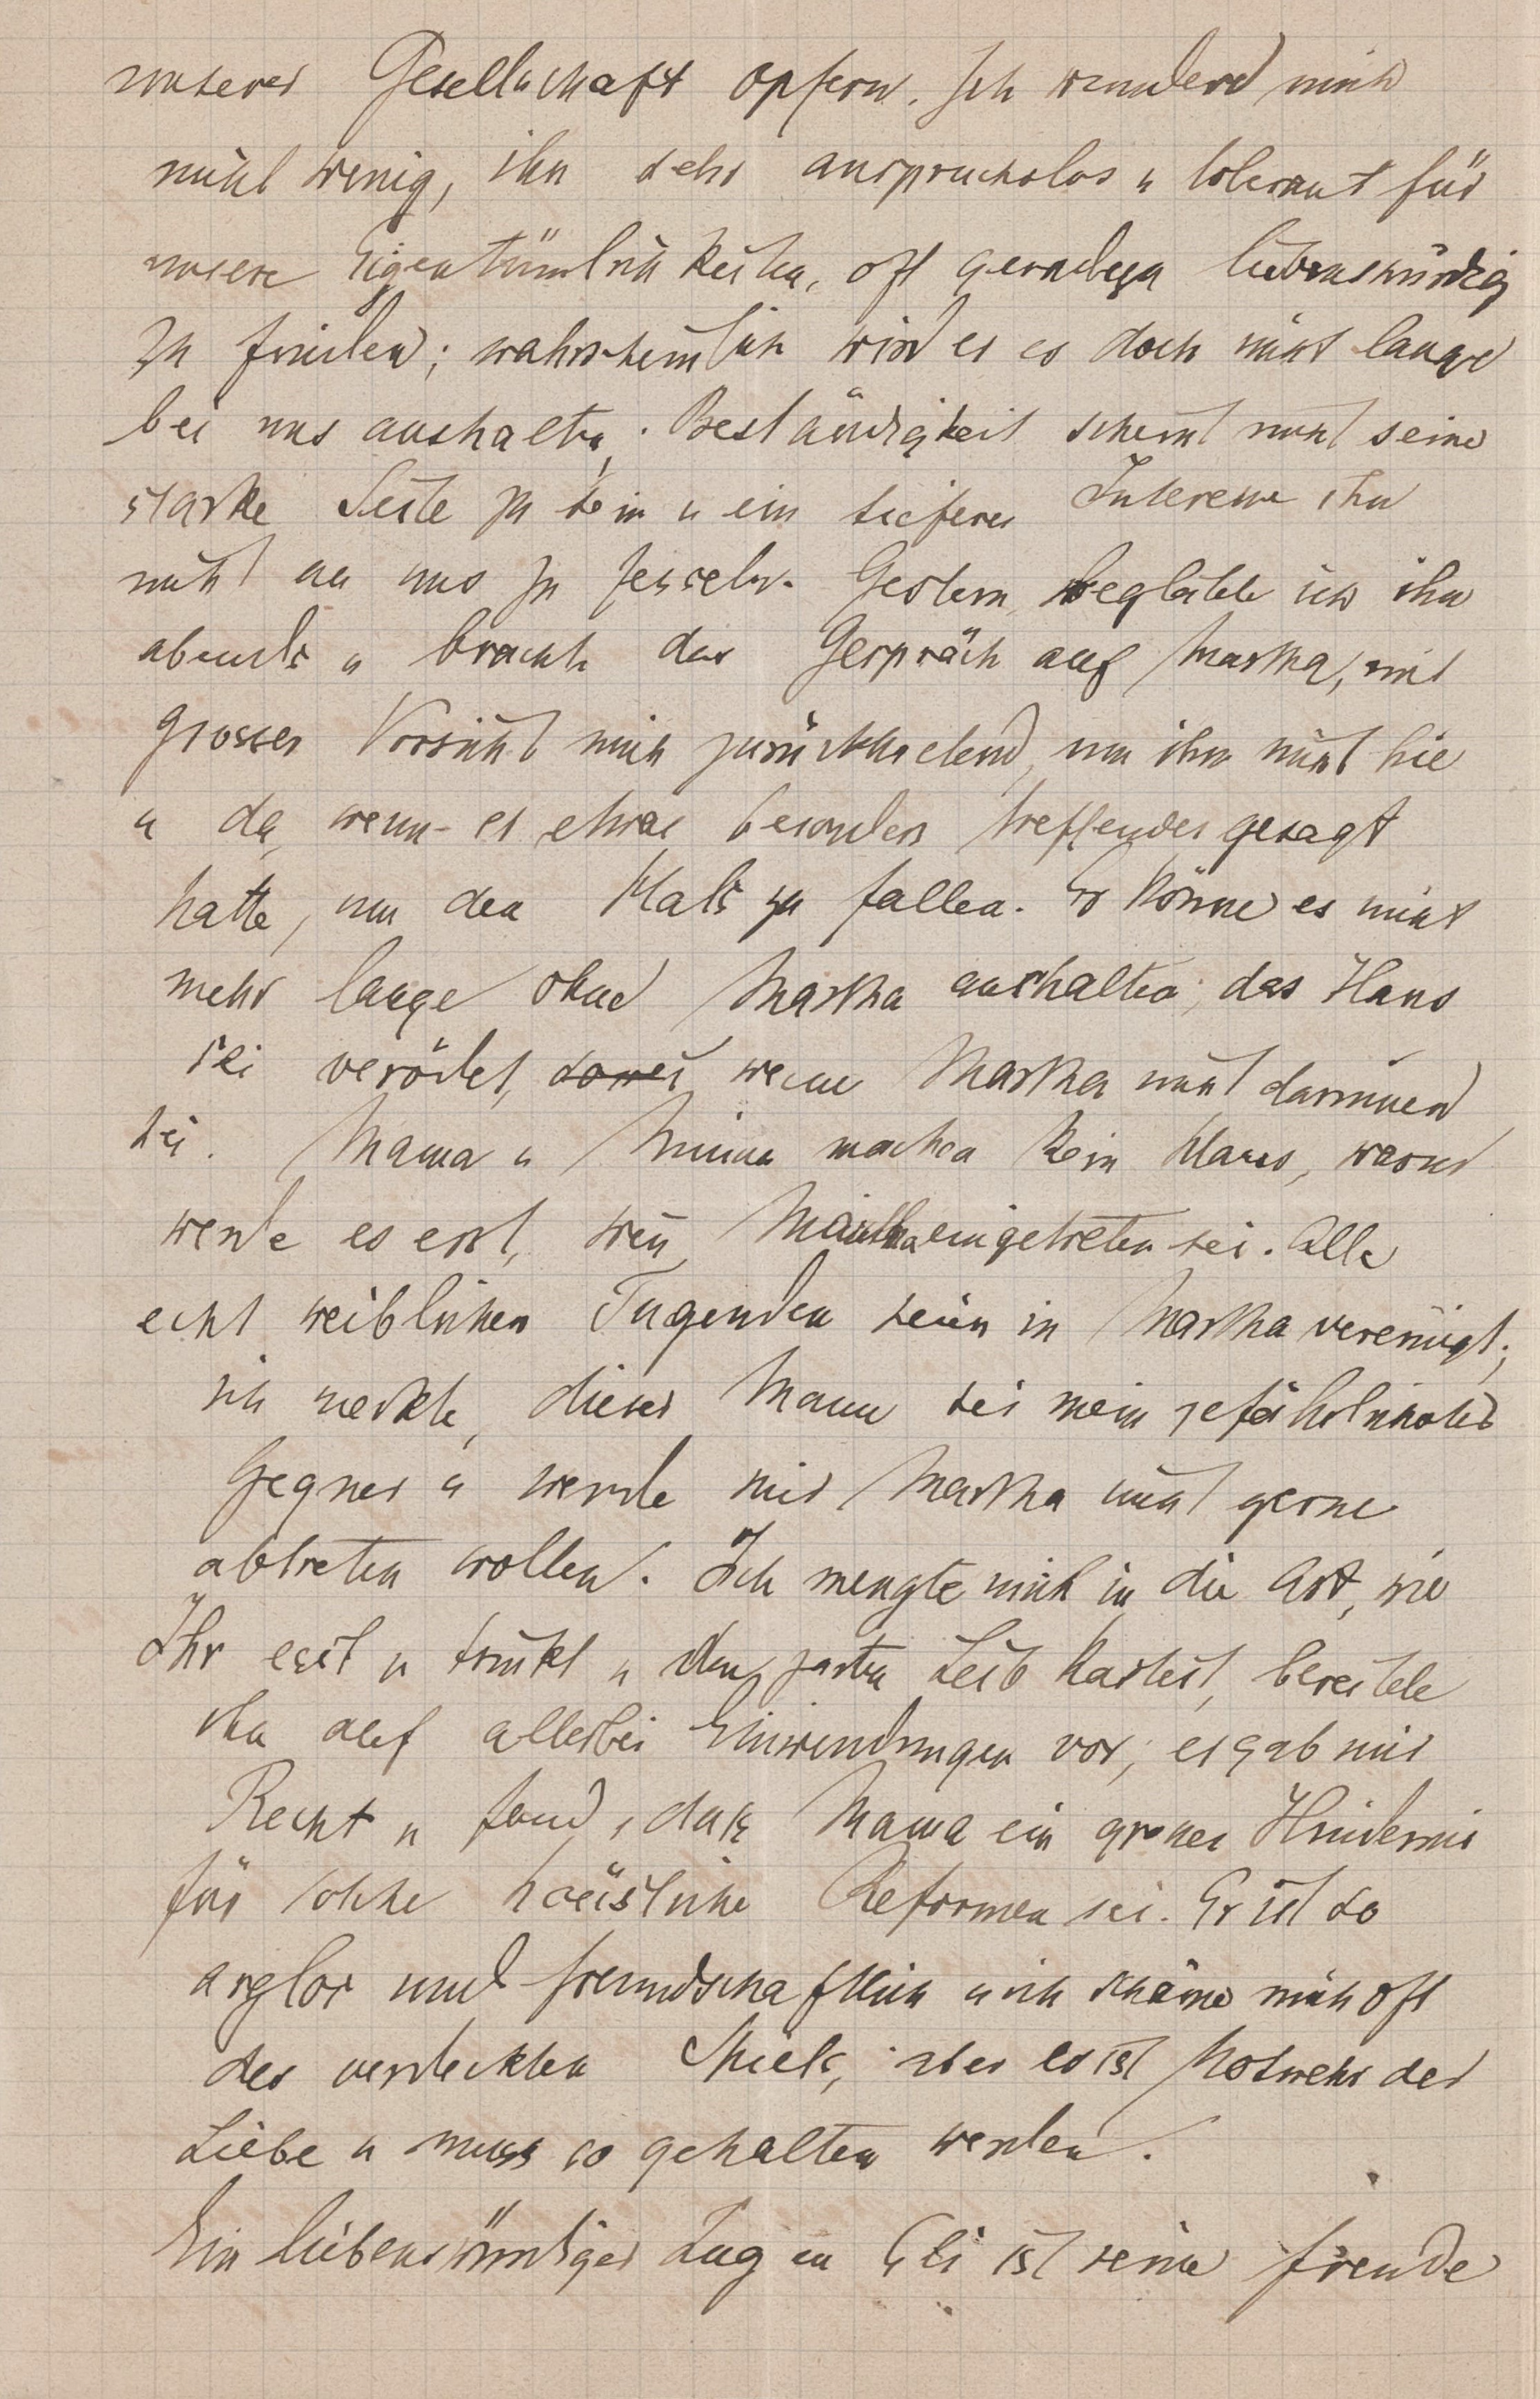 unserer Gesellschaft opfern. Ich wundere mich
nicht wenig, ihn sehr anspruchslos u tolerant für
unsere Eigentümlichkeiten, oft geradezu liebenswürdig
zu finden; wahrscheinlich wird er es doch nicht lange
bei uns aushalten. Beständigkeit scheint nicht seine
starke Seite zu sein u ein tieferes Interesse ihn
nicht an uns zu fesseln. Gestern begleitete ich ihn
abends u brachte das Gespräch auf Martha, mit
grosser Vorsicht mich zurückhaltend, um ihm nicht hie
u da, wenn er etwas besonders treffendes gesagt
hatte, um den Hals zu fallen. Er könne es nicht
mehr lange ohne Martha aushalten, das Haus
sei verödet, wenn Martha nicht darinnen
sei. Mama u Minna machen kein Haus,
werde es erst, wenn Martha eingetreten sei. Alle
echt weiblichen Tugenden seien in Martha vereinigt;
ich merkte, dieser Mann sei mein gefährlichster
Gegner u werde mir Martha nicht gerne
abtreten wollen. Ich mengte mich in die Art, wie
Ihr esst u trinkt u den zarten Leib kasteit, bereitete
ihn auf allerlei Einwendungen vor; er gab mir
Recht u fand, daß Mama ein grosses Hindernis
für solche häusliche Reformen sei. Er ist so
arglos und freundschaftlich u ich schäme mich oft
des verdeckten Spiels, aber es ist Notwehr der
Liebe u muss so gehalten werden.
Ein liebenswürdiger Zug an Eli ist seine Freude